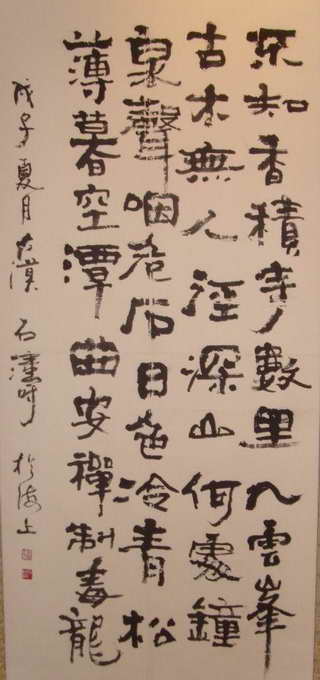 不知香積寺數里入雲峯
古木無人徑深山何處鐘
泉聲咽危石日色冷青松
薄暮空潭曲安禪制毒龍
戊子夏月 石 於海上